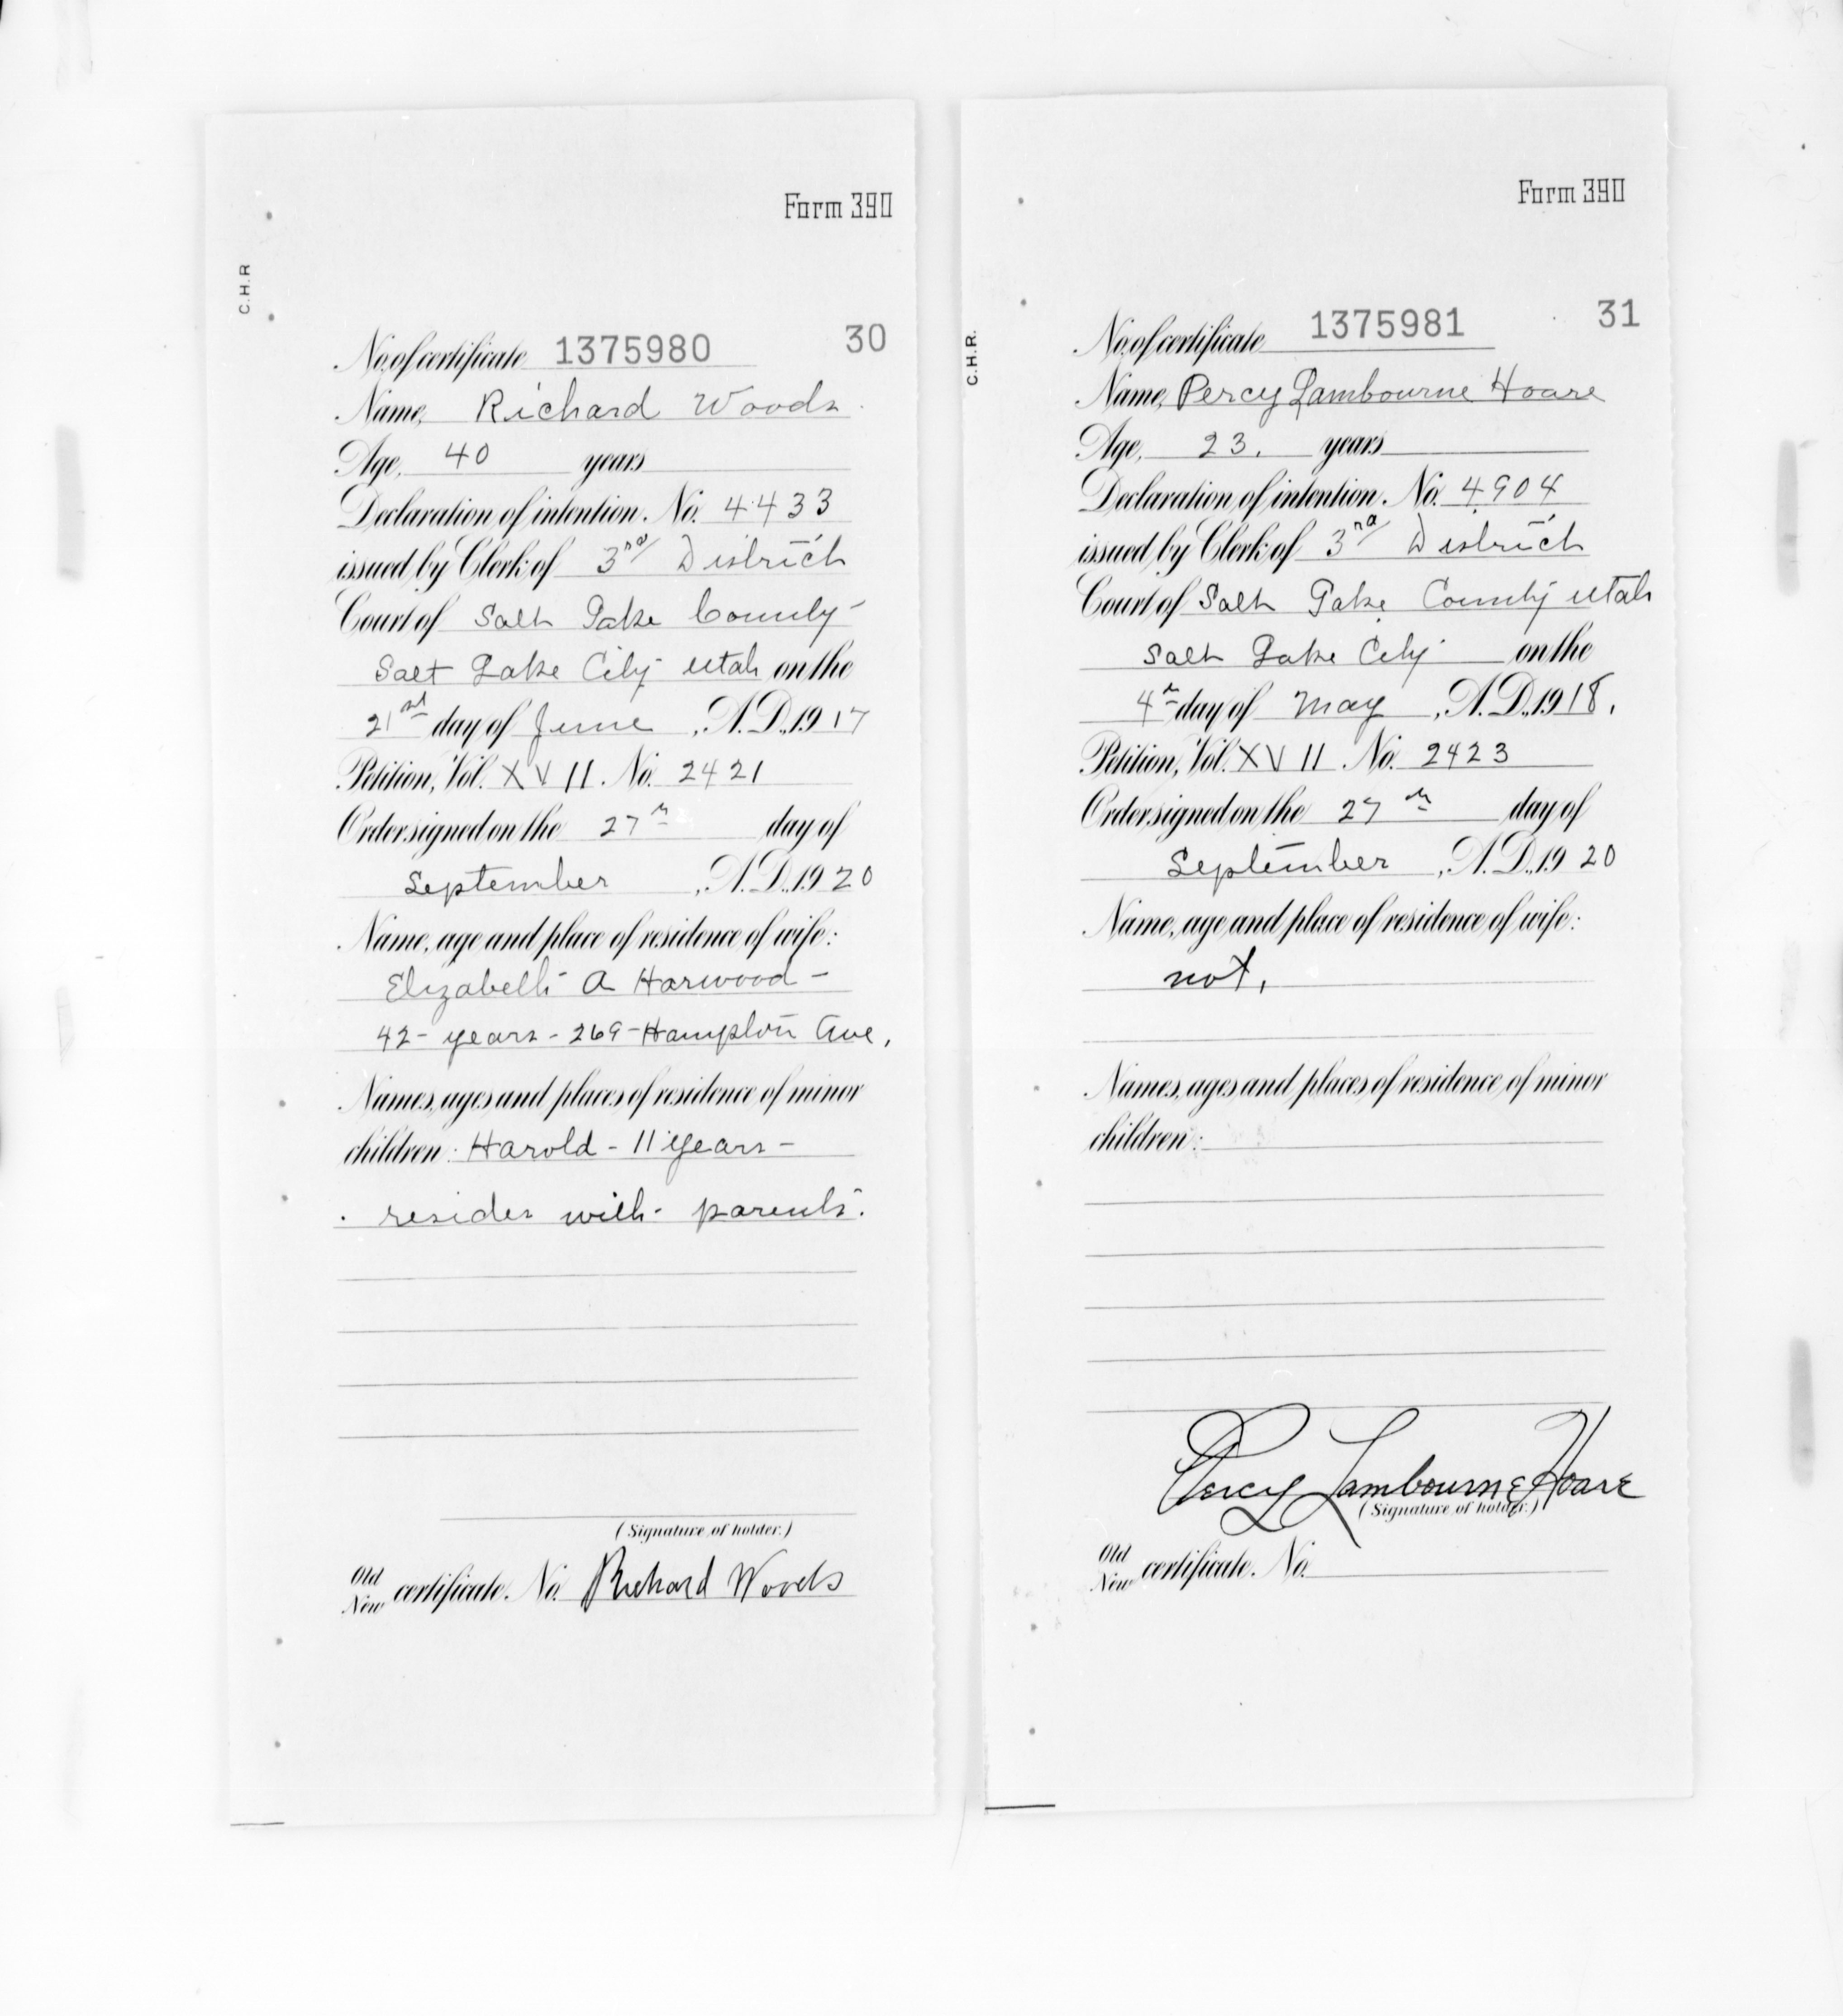 Form 390
C.H.R
No. of certificate 1375980 30
Name, Richard Woods
Age, 40 years
Declaration of intention. No. 4433
issued by Clerk of 3rd District
Court of Salt Lake County
Salt Lake City Utah on the
21st day of June, A.D., 1917
Petition, Vol. XVII. No. 2421
Order signed on the 27th day of
September, A.D., 1920
Name, age and place of residence of wife:
Elizabeth A Harwood -
42- years - 269 - Hampton Ave,
Names, ages and places of residence of minor
children: Harold - 11 years -
resides with parents.
(Signature of holder.)
Old
New certificate. No. Richard Woods
Form 390
C.H.R.
No. of certificate 1375981 31
Name, Percy Lambourne Hoare
Age, 23. years
Declaration of intention. No. 4904
issued by Clerk of 3rd District
Court of Salt Lake County Utah
Salt Lake City on the
4th day of May, A.D., 1918.
Petition, Vol. XVII. No. 2423
Order signed on the 27th day of
September, A.D., 1920
Name, age and place of residence of wife:
not,
Names, ages and places of residence of minor
children:
Percy Lambourne Hoare
(Signature of holder.)
Old
New certificate. No.